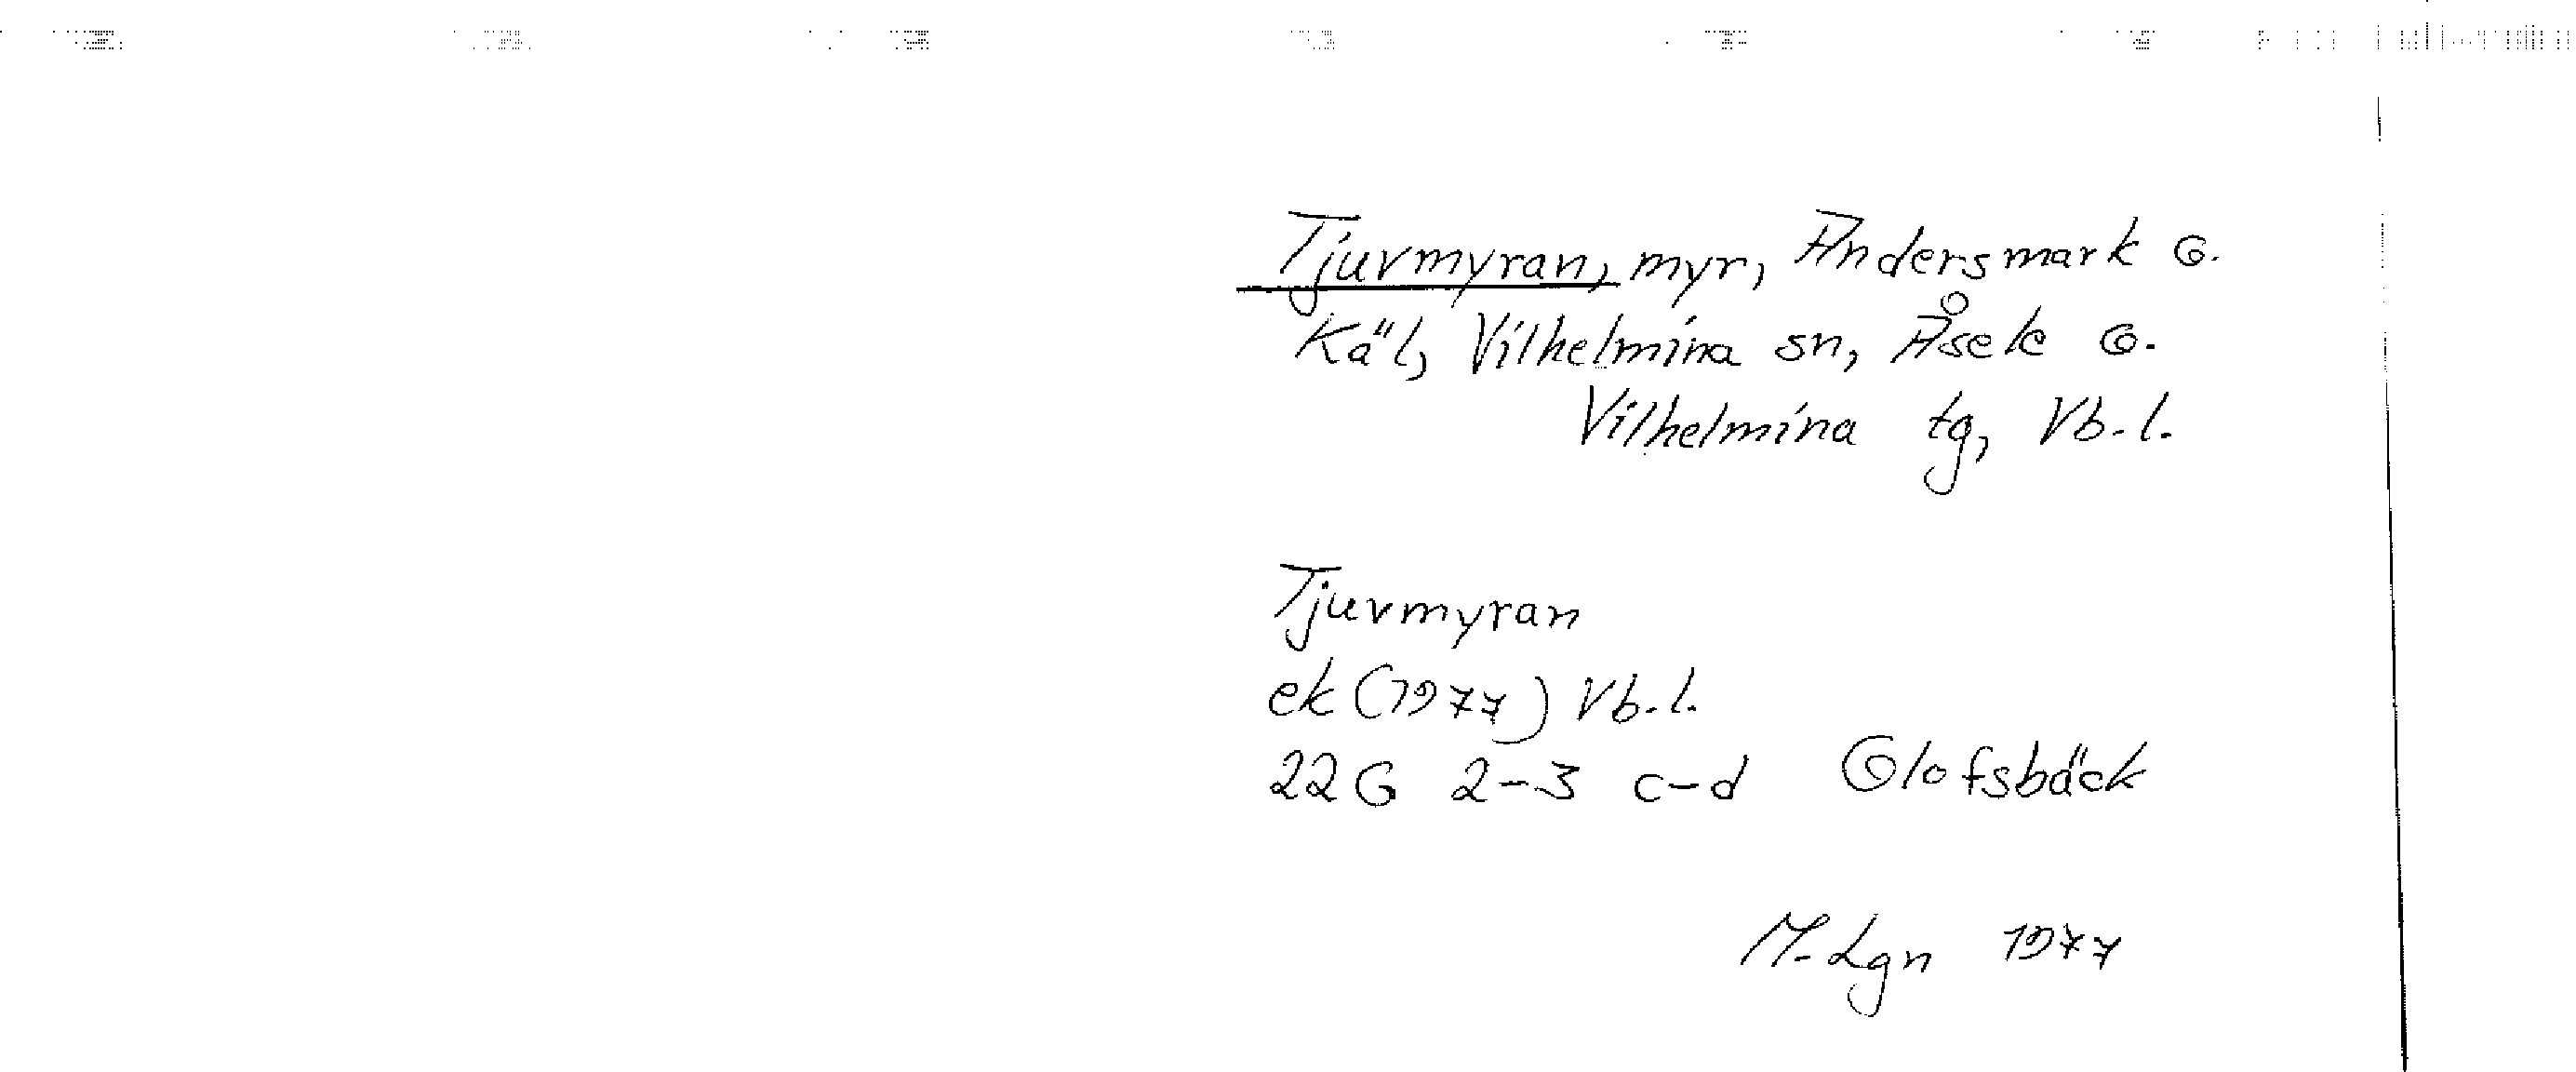 Tjuvmyran, myr, Andersmark o.
Käl, Vilhelmina sn, Åsele o.
Vilhelmina tg, Vb. l.
Tjuvmyran
ek (1977) Vb. l.
22G 2-3 c-d Olofsbäck
M. Lgn 1977